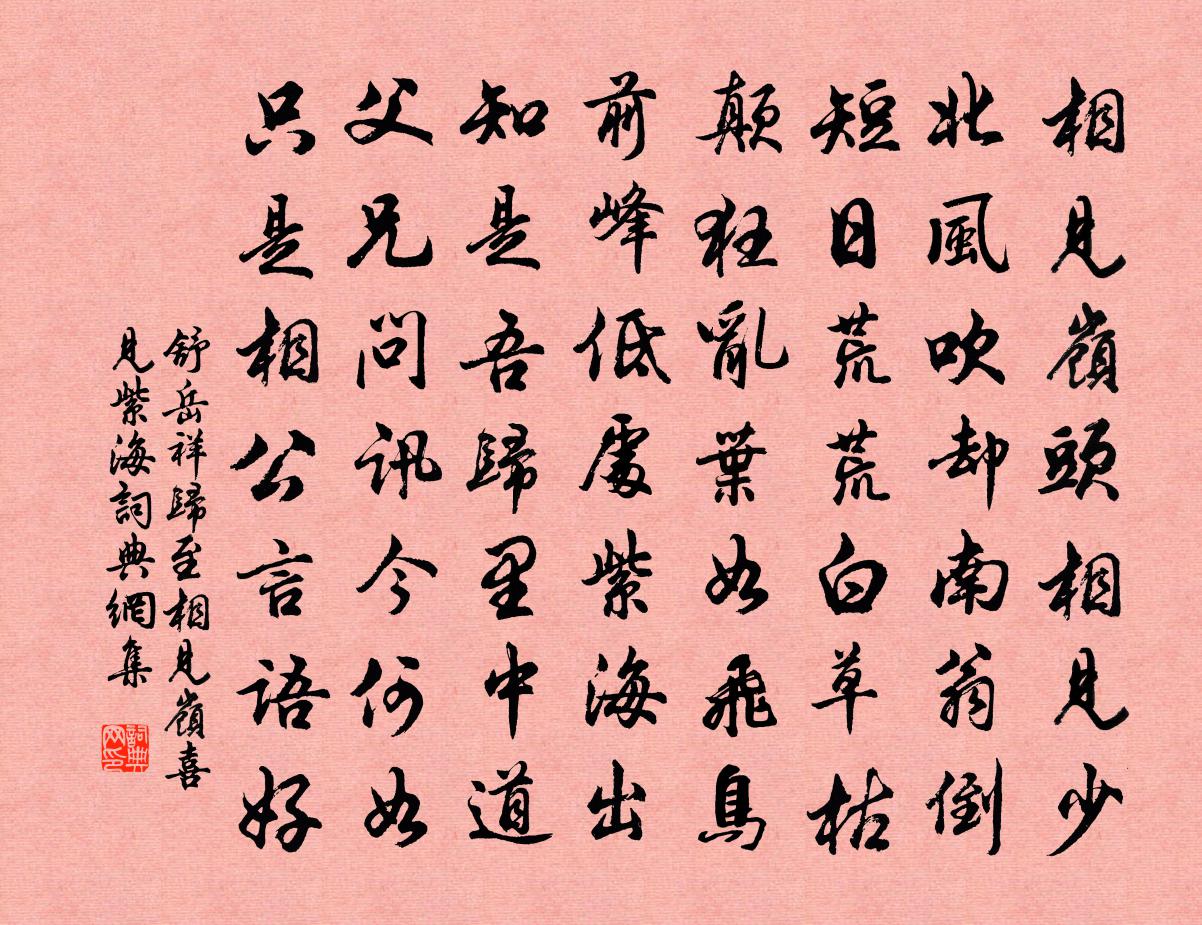 相見嶺頭相見少
北風吹却南翁倒
短日荒荒白草枯
顛狂亂葉如飛鳥
前峰低處紫海出
知是吾歸里中道
父兄問訊今何如
只是相公言語好
舒岳祥歸至相見嶺喜
見紫海詞典網集
詞典
网印